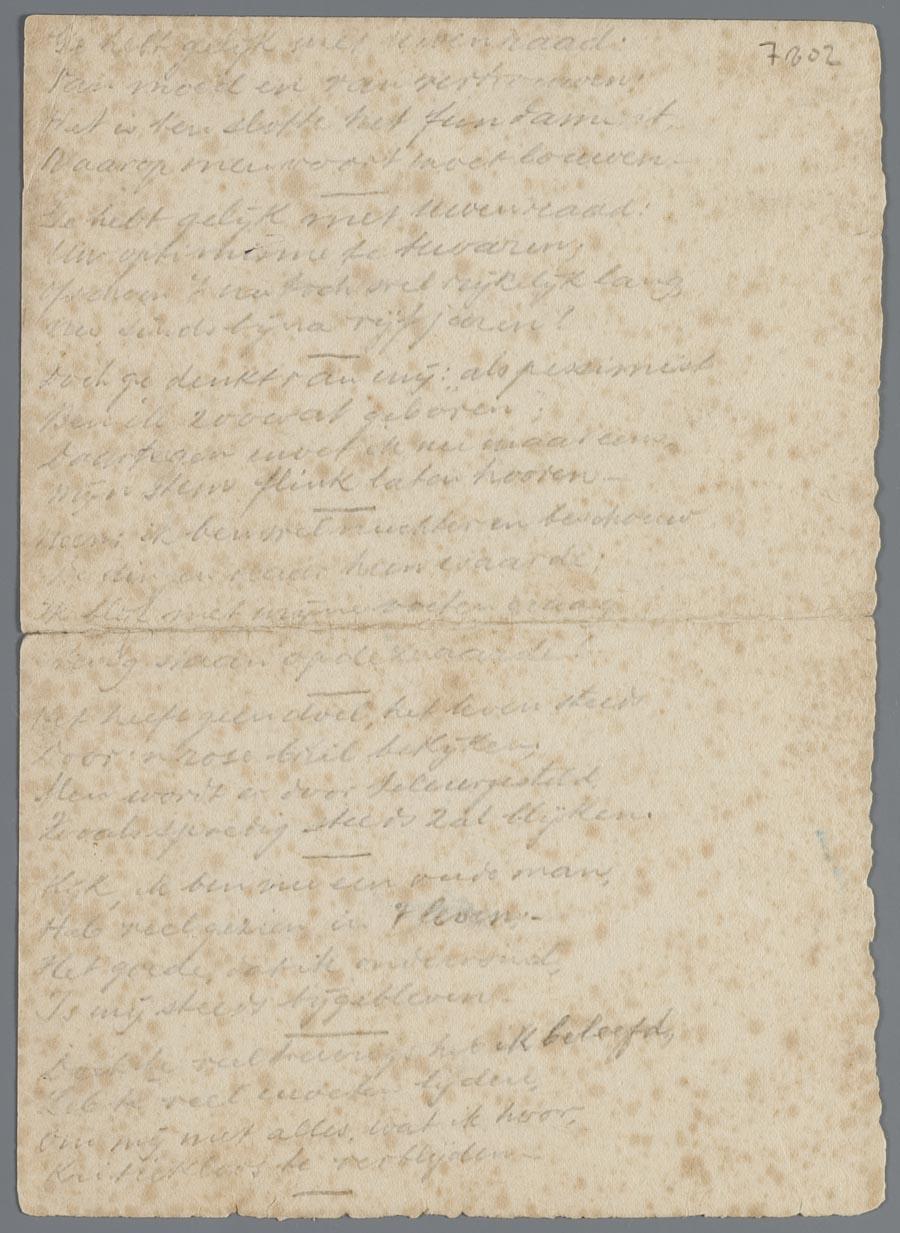 7802
Ge hebt gelijk met uwen raad:
Van moed en van vertrouwen:
Het is ten slotte het fundament,
Waarop men voort moet bouwen —
Ge hebt gelijk met uwen raad:
Uw optimisme te bewaren;
Ofschoon 't nu toch wel rijkelijk lang,
nu sinds bijna vijf jaren!
Doch ge denkt van mij: "als pessimist
Ben ik zoowat geboren";
Daartegen moet ik nu maar eens
mijn stem flink laten hooren —
Neen: ik ben wel nuchter en beschouw
De dingen naar heen waarde;
Ik met mijne voeten graag
Stevig staan op deze aarde!
Het heeft geen doel, het leven steeds
Door 'n rose bril bekijken;
Men wordt er door teleurgesteld,
Zooals spoedig steeds zal blijken.
Kijk, ik ben nu een oude man,
Heb veel gezien in 't leven; —
Het goede, dat ik ondervond,
Is mij steeds bijgebleven —
Doch te veel treurigs heb ik beleefd,
Heb te veel moeten lijden,
Om mij met alles, wat ik hoor,
Kritiekloos te verblijden —